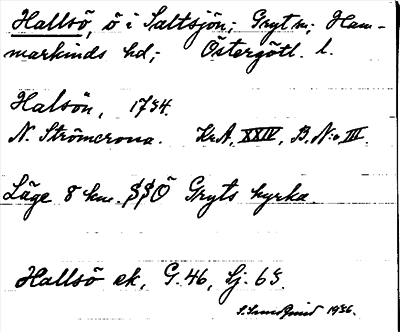 Hallsö, ö i Saltsjön; Gryt sn; Ham-
markinds hd; Östergötl. l.
Halsön, 1734.
N. Strömcrona. KrA, XXIV, B, N:o III.
Läge 8 km. SSÖ Gryts kyrka.
Hallsö ek, G. 46, Sj. 63.
S. Lundquist 1936.